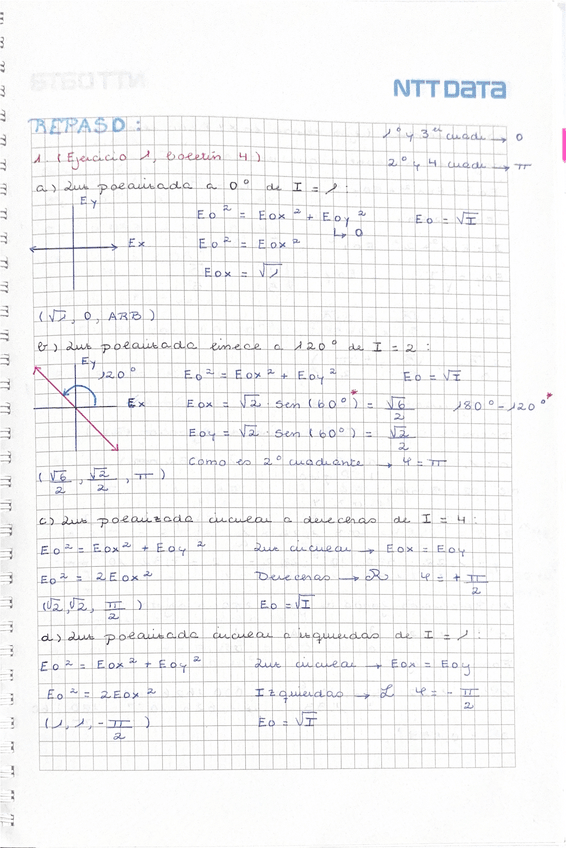 NTT DATA
REPASO:
1º y 3er cuadr → 0
1. (Ejercicio 1, boletín 4)
2º y 4 cuadr → π
a) Luz polarizada a 0º de I = 1:
Ey
E0² = E0x² + E0y² E0 = √I
↳ 0
Ex E0² = E0x²
E0x = √1
(√1, 0, ARB)
b) Luz polarizada linece a 120º de I = 2:
Ey
120º E0² = E0x² + E0y² E0 = √I
Ex E0x = √2 · sen(60º)* = √6/2 180º - 120º*
E0y = √2 · sen(60º) = √2/2
Como es 2º cuadrante → φ = π
(√6/2, √2/2, π)
c) Luz polarizada circular a derechas de I = 4:
E0² = E0x² + E0y² Luz circular → E0x = E0y
E0² = 2E0x² Derechas → R φ = + π/2
(√2, √2, π/2) E0 = √I
d) Luz polarizada circular a izquierdas de I = 1:
E0² = E0x² + E0y² Luz circular → E0x = E0y
E0² = 2E0x² Izquierdas → L φ = - π/2
(1, 1, - π/2) E0 = √I